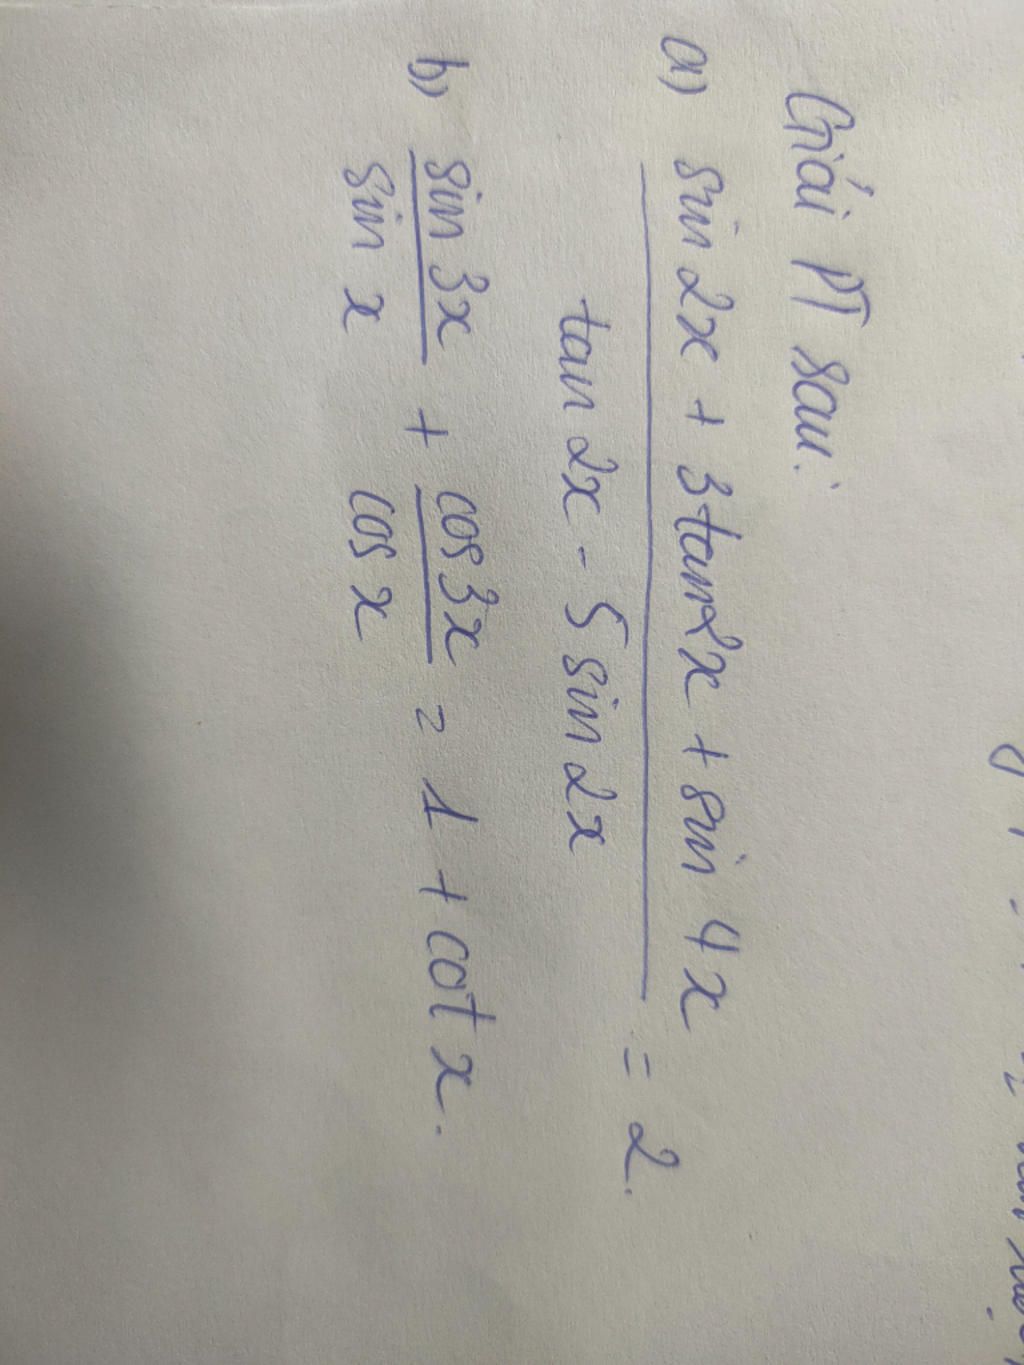 Giải PT sau:
a) sin 2x + 3tan2x + sin 4x
tan 2x - 5 sin 2x
= 2.
b) sin 3x / sin x + cos 3x / cos x = 1 + cot x.